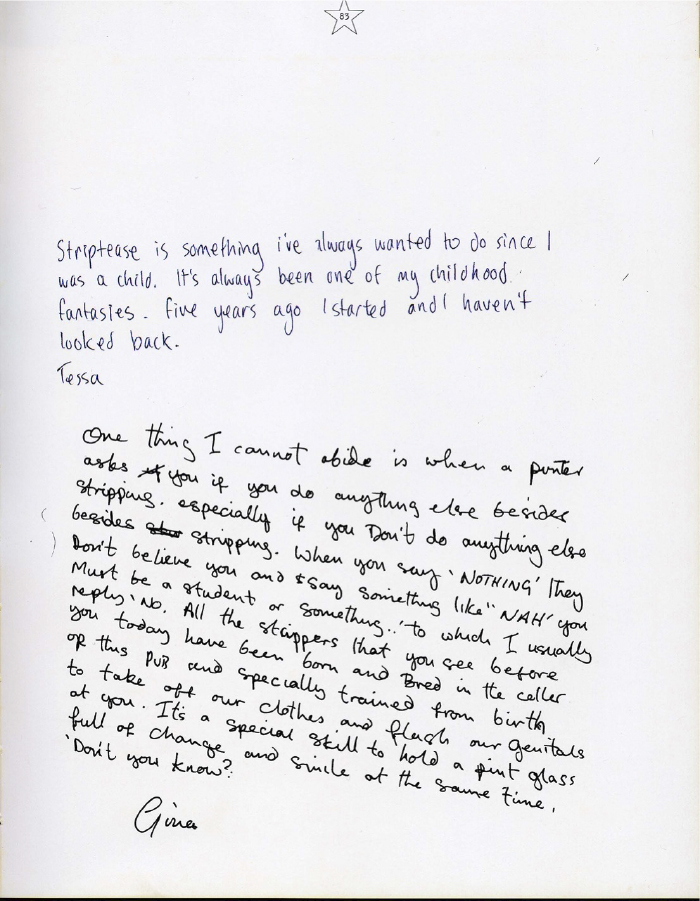 83
Striptease is something i've always wanted to do since I
was a child. It's always been one of my childhood
fantasies. Five years ago I started and I haven't
looked back.
Tessa
One thing I cannot abide is when a punter
asks you if you do anything else besides
stripping. especially if you Don't do anything else
besides stripping. When you say 'NOTHING' They
Don't believe you and say something like" NAH' you
Must be a student or something..' to which I usually
reply 'No. All the strippers that you see before
you today have been born and Bred in the celler
of this PUB and specially trained from birth
to take off our clothes and flash our genitals
at you. It's a special skill to hold a pint glass
full of change and smile at the same time.
'Don't you know?
Gina